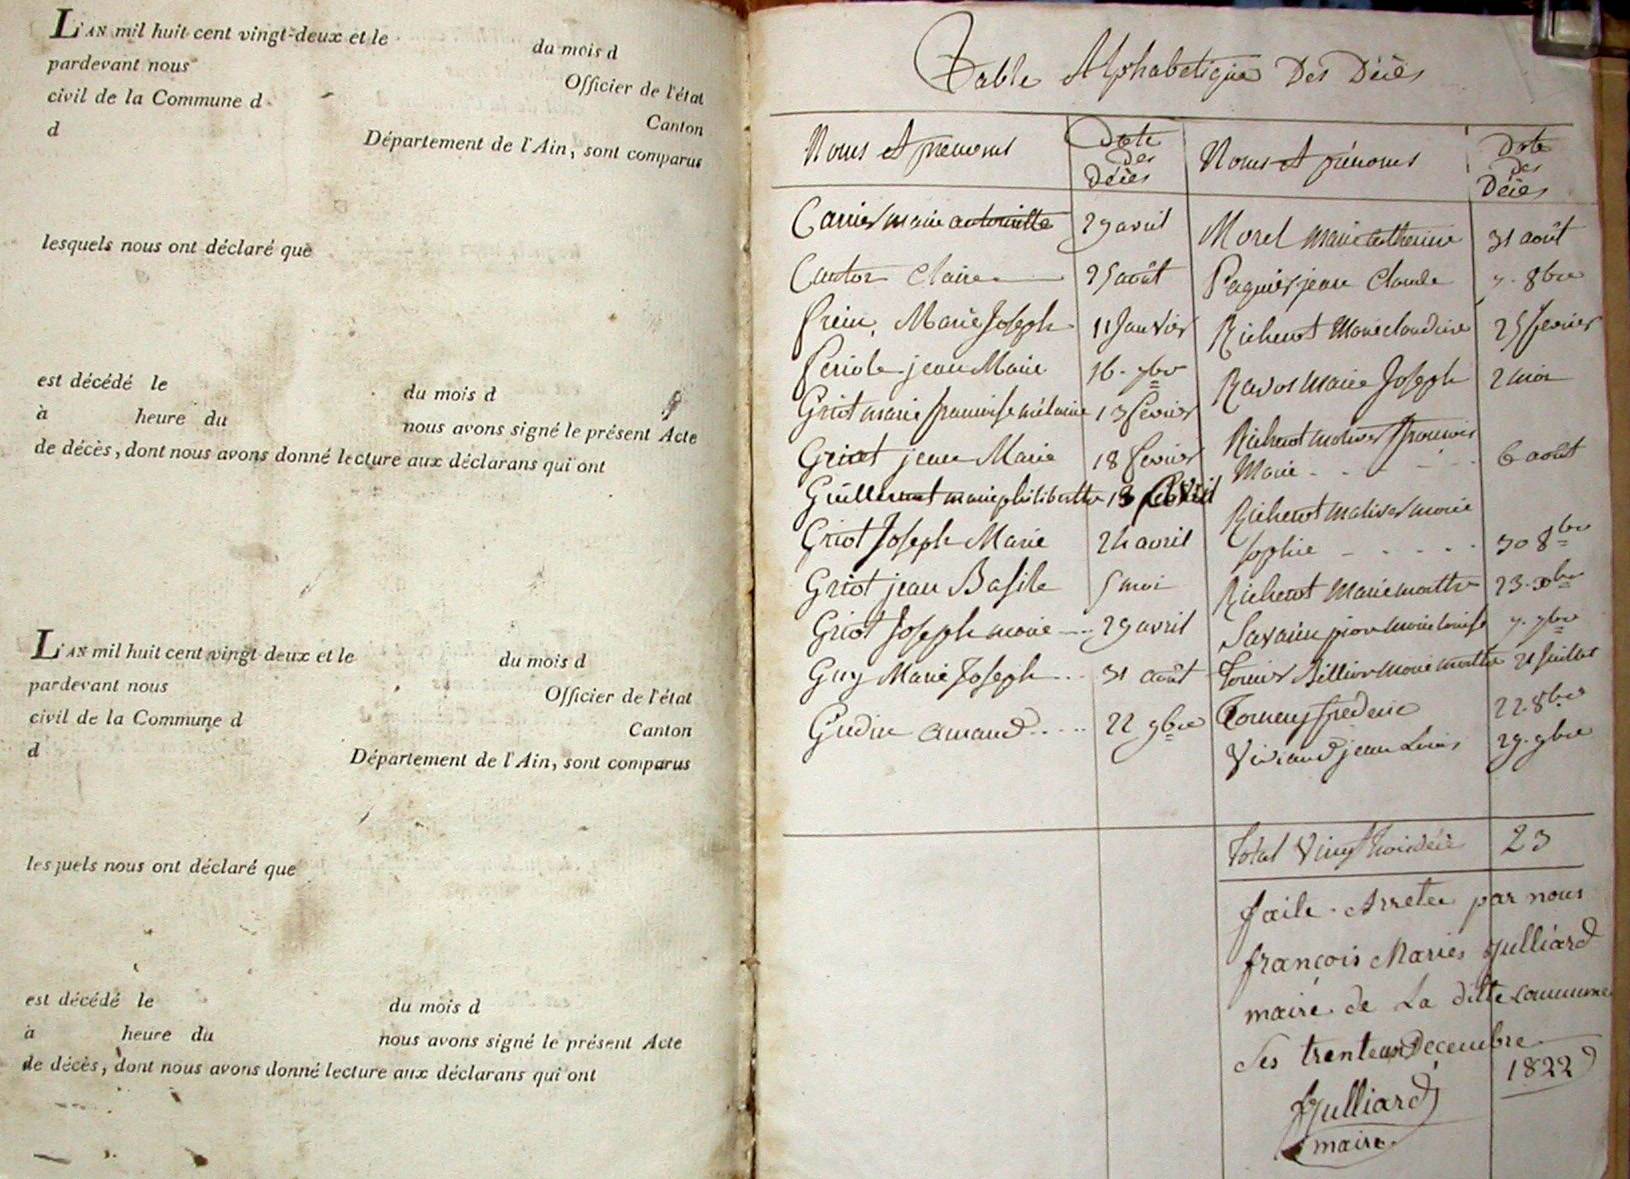 L'AN mil huit cent vingt-deux et le du mois d
pardevant nous Officier de l'état
civil de la Commune d Canton
d Département de l'Ain, sont comparus
lesquels nous ont déclaré que
est décédé le du mois d
à heure du nous avons signé le présent Acte
de décès, dont nous avons donné lecture aux déclarans qui ont
L'AN mil huit cent vingt deux et le du mois d
pardevant nous Officier de l'état
civil de la Commune d Canton
d Département de l'Ain, sont comparus
lesquels nous ont déclaré que
est décédé le du mois d
à heure du nous avons signé le présent Acte
de décès, dont nous avons donné lecture aux déclarans qui ont
Table Alphabetique Des Décès
Noms et prenoms
Date
des
Décès
Carrier marie antoinette 29 avril
Claire 25 août
Marie Joseph 11 Janvier
jean Marie 16. 9bre
Griot marie francoise mélanie 13 fevrier
Griot jean Marie 18 fevrier
Guillermet marie philiberthe 13 avril
Griot Joseph Marie 24 avril
Griot jean Basile 5 mai
Griot Joseph marie 29 avril
Guy Marie Joseph 31 août
Gudin amand 22 9bre
Noms et prénoms
Date
des
Décès
Morel marie catherine 31 août
Paquier jean Claude 7. 8bre
Richerot Marie claudine 25 fevrier
Ravos marie Joseph 2 mai
Richerot francois
Marie 6 août
Richerot marie
sophie 30 8bre
Richerot Marie marthe 23. Xbre
marie louise 7. 9bre
Billion marie marthe 21 Juillet
frederic 22. 8bre
Viviand jean Louis 29. 9bre
Total vingt trois décès 23
faite. Arretée par nous
françois Maries Julliard
maire de La ditte commune
Les trente un Decembre
1822
Julliard
maire